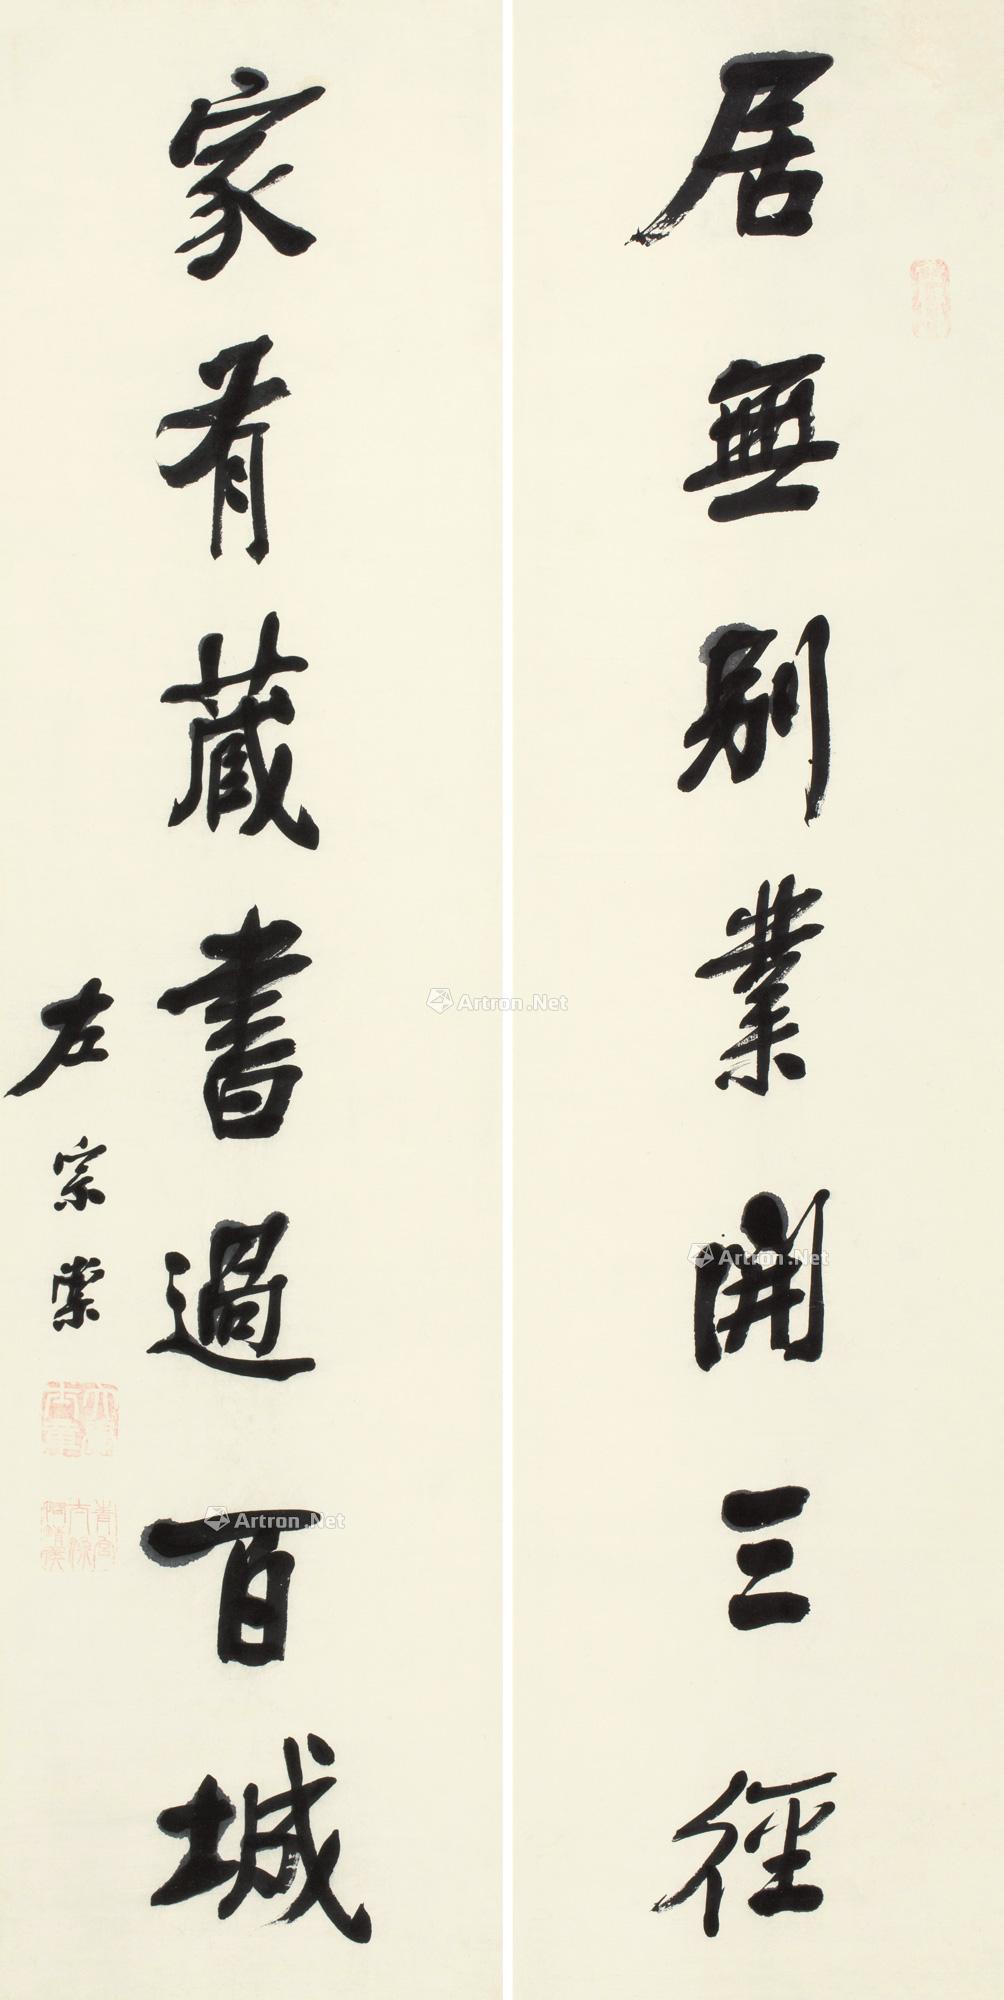 居無別業開三徑
家有藏書過百城
左宗棠
Artron.Net
Artron.Net
Artron.Net